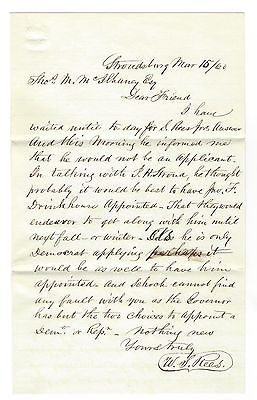 Stroudsburg Mar 15/60
Thos. M. McIlhaney Esq
Dear Friend
I have
waited until to day for S. Rees Jrs Answer
And this Morning he informed me
that he would not be an Applicant.
In talking with S. H. Stroud, he thought
probably it would be best to have Jno. F.
Drinkhouse Appointed - That they would
endeavor to get along with him until
next fall - or winter - he is only
Democrat applying perhaps it
would be as well to have him
appointed - And Schoch cannot find
any fault with you as the Governor
has but the two Choices to Appoint a
Demc. or Repc. - Nothing new
Yours truly
W. S. Rees.